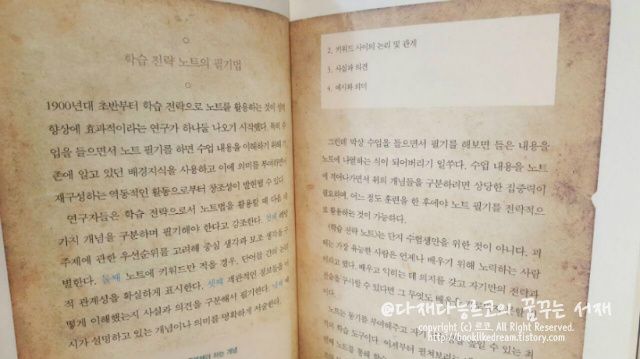 학습 전략 노트의 필기법
1900년대 초반부터 학습 전략으로 노트를 활용하는 것이
향상에 효과적이라는 연구가 하나둘 나오기 시작했다. 특히 수
업을 들으면서 노트 필기를 하면 수업 내용을 이해하기 위해 기
존에 알고 있던 배경지식을 사용하고 이에 의미를 부여하면서
재구성하는 역동적인 활동으로부터 창조성이 발현될 수 있다.
연구자들은 학습 전략으로서 노트법을 활용할 때 다음 네
가지 개념을 구분하며 필기해야 한다고 강조한다. 첫째
주제에 관한 우선순위를 고려해 중심 생각과 보조 생각을 구
별한다. 둘째 노트에 키워드만 적을 경우, 단어들 간의 논리
적 관계성을 확실하게 표시한다. 셋째 객관적인 정보들을
떻게 이해했는지 사실과 의견을 구분해서 필기한다. 넷째
시가 설명하고 있는 개념이나 의미를 명확하게 저술한다.
2. 키워드 사이의 논리 및 관계
3. 사실과 의견
4. 예시와 의미
그런데 막상 수업을 들으면서 필기를 해보면 들은 내용을
노트에 나열하는 식이 되어버리기 일쑤다. 수업 내용을 노트
에 적어나가면서 위의 개념들을 구분하려면 상당한 집중력이
필요하며, 어느 정도 훈련을 한 후에야 노트 필기를 전략적으
로 활용하는 것이 가능하다.
〈학습 전략 노트〉는 단지 수험생만을 위한 것이 아니다. 피
는 가장 유능한 사람은 언제나 배우기 위해 노력하는 사람
이라고 했다. 배우고 익히는 데 의지를 갖고 자기만의 전략과
전술을 구사할 수 있다면 그 무엇도
노트는 동기를 부여해주고
적의 학습 도구이다.
노트를 통해
@다재다능르코의 꿈꾸는 서재
copyright (c) 르코. All Right Reserved.
http://booklikedream.tistory.com/